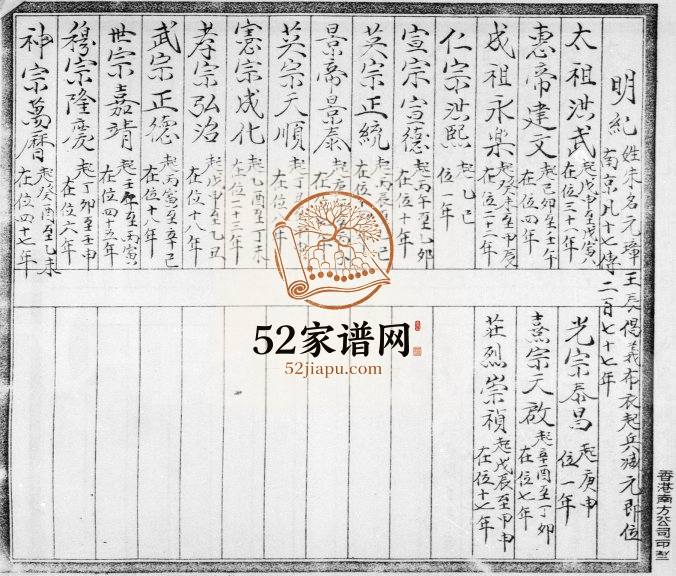 明紀 姓朱名元璋 王長倡義布衣起兵滅元即位
南京凡十七傳二百七十七年
太祖洪武 起戊申至戊寅
在位三十一年
惠帝建文 起己卯至壬午
在位四年
成祖永樂 起癸未至甲辰
在位二十二年
仁宗洪熙 起乙巳
在位一年
宣宗宣德 起丙午至乙卯
在位十年
英宗正統 起丙辰至
在位十
景帝景泰 起
在位
英宗天順 起丁
在位 年
憲宗成化 起乙酉至丁未
在位二十三年
孝宗弘治 起戊申至乙丑
在位十八年
武宗正德 起丙寅至辛巳
在位十八年
世宗嘉靖 起壬午至丙寅
在位四十五年
穆宗隆慶 起丁卯至壬申
在位六年
神宗萬曆 起癸酉至己未
在位四十七年
光宗泰昌 起庚申
位一年
熹宗天啟 起辛酉至丁卯
在位七年
莊烈崇禎 起戊辰至甲申
在位十七年
52家谱网
52jiapu.com
香港南方公司印製